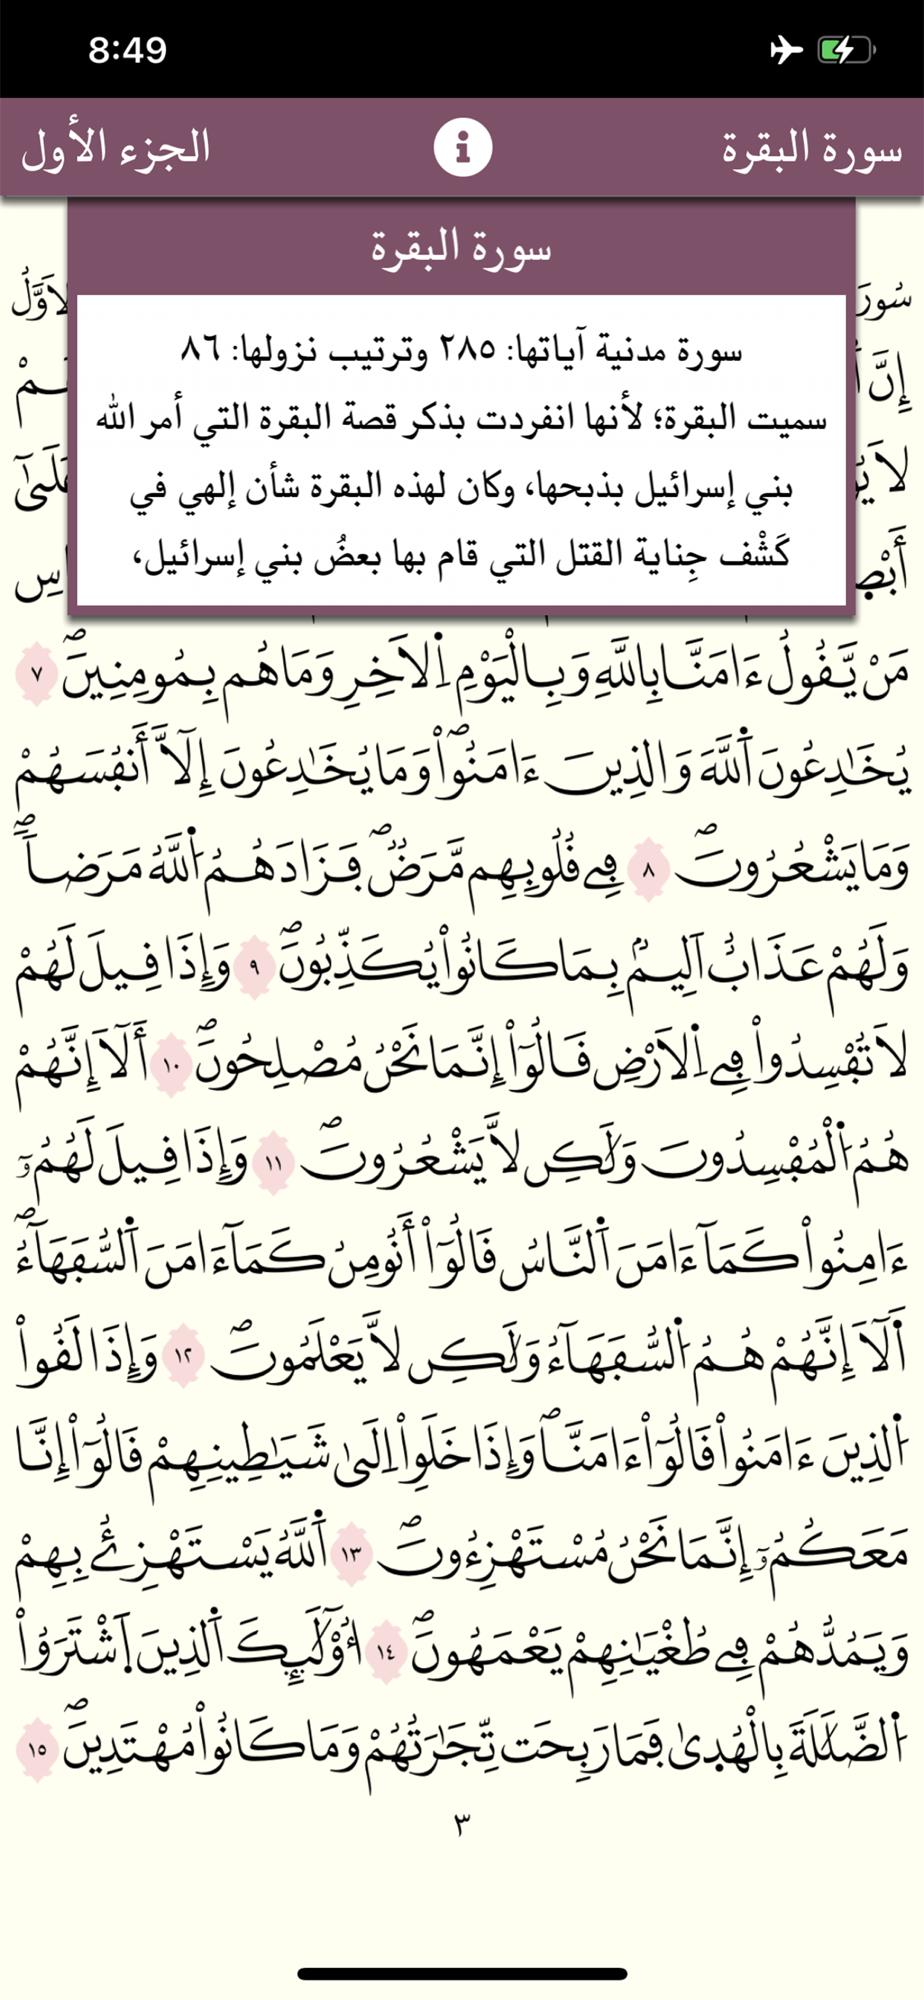 8:49
سورة البقرة
الجزء الأول
سورة البقرة
سورة مدنية آياتها: ٢٨٥ وترتيب نزولها: ٨٦
سميت البقرة؛ لأنها انفردت بذكر قصة البقرة التي أمر الله
بني إسرائيل بذبحها، وكان لهذه البقرة شأن إلهي في
كَشْف جِناية القتل التي قام بها بعضُ بني إسرائيل،
إِنَّ
مَنْ يَّقُولُ ءَامَنَّا بِاللَّهِ وَبِالْيَوْمِ اِ۬لَاخِرِ وَمَا هُم بِمُومِنِينَۖ ٧
يُخَٰدِعُونَ اَ۬للَّهَ وَالذِينَ ءَامَنُواْۖ وَمَا يُخَٰدِعُونَ إِلَّآ أَنفُسَهُمْ
وَمَا يَشْعُرُونَۖ ٨ فِے قُلُوبِهِم مَّرَضٞۖ فَزَادَهُمُ اُ۬للَّهُ مَرَضاٗۖ
وَلَهُمْ عَذَابٌ اَلِيمُۢ بِمَا كَانُواْ يُكَذِّبُونَۖ ٩ وَإِذَا قِيلَ لَهُمْ
لَا تُفْسِدُواْ فِے اِ۬لَارْضِ قَالُوٓاْ إِنَّمَا نَحْنُ مُصْلِحُونَۖ ١٠ أَلَآ إِنَّهُمْ
هُمُ اُ۬لْمُفْسِدُونَ وَلَٰكِن لَّا يَشْعُرُونَۖ ١١ وَإِذَا قِيلَ لَهُمُۥٓ
ءَامِنُواْ كَمَآ ءَامَنَ اَ۬لنَّاسُ قَالُوٓاْ أَنُومِنُ كَمَآ ءَامَنَ اَ۬لسُّفَهَآءُۖ
أَلَآ إِنَّهُمْ هُمُ اُ۬لسُّفَهَآءُ وَلَٰكِن لَّا يَعْلَمُونَۖ ١٢ وَإِذَا لَقُواْ
اُ۬لذِينَ ءَامَنُواْ قَالُوٓاْ ءَامَنَّاۖ وَإِذَا خَلَوِاْ اِلَىٰ شَيَٰطِينِهِمْ قَالُوٓاْ إِنَّا
مَعَكُمُۥٓ إِنَّمَا نَحْنُ مُسْتَهْزِءُونَۖ ١٣ اَ۬للَّهُ يَسْتَهْزِۓُ بِهِمْ
وَيَمُدُّهُمْ فِے طُغْيَٰنِهِمْ يَعْمَهُونَۖ ١٤ أُوْلَٰٓئِكَ اَ۬لذِينَ اَ۪شْتَرَوُاْ
اُ۬لضَّلَٰلَةَ بِالْهُد۪ىٰ فَمَا رَبِحَت تِّجَٰرَتُهُمْ وَمَا كَانُواْ مُهْتَدِينَۖ ١٥
٣